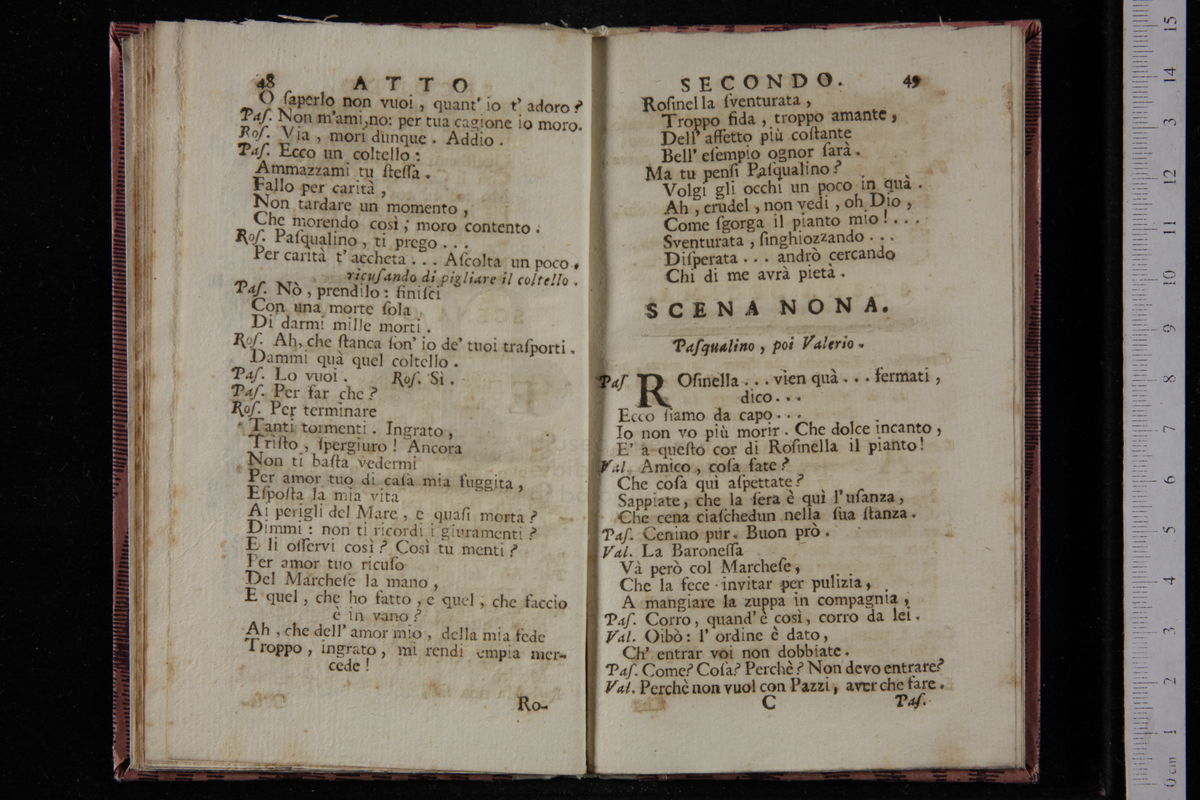 48 ATTO
O ſaperlo non vuoi, quant' io t' adoro?
Paſ. Non m'ami,no: per tua cagione io moro.
Roſ. Via, mori dunque. Addio.
Paſ. Ecco un coltello:
Ammazzami tu ſteſſa.
Fallo per carità,
Non tardare un momento,
Che morendo così, moro contento.
Roſ. Paſqualino, ti prego...
Per carità t' accheta... Aſcolta un poco.
ricuſando di pigliare il coltello.
Paſ. Nò, prendilo: finiſci
Con una morte ſola
Di darmi mille morti.
Roſ. Ah, che ſtanca ſon' io de' tuoi traſporti.
Dammi quà quel coltello.
Paſ. Lo vuoi. Roſ. Sì.
Paſ. Per far che?
Roſ. Per terminare
Tanti tormenti. Ingrato,
Triſto, ſpergiuro! Ancora
Non ti baſta vedermi
Per amor tuo di caſa mia fuggita,
Eſpoſta la mia vita
Ai perigli del Mare, e quaſi morta?
Dimmi: non ti ricordi i giuramenti?
E li oſſervi così? Così tu menti?
Per amor tuo ricuſo
Del Marcheſe la mano,
E quel, che ho fatto, e quel, che faccio
è in vano?
Ah, che dell' amor mio, della mia fede
Troppo, ingrato, mi rendi empia mer-
cede!
Ro-
SECONDO. 49
Roſinella ſventurata,
Troppo fida, troppo amante,
Dell' affetto più coſtante
Bell' eſempio ognor ſarà.
Ma tu penſi Paſqualino?
Volgi gli occhi un poco in quà.
Ah, crudel, non vedi, oh Dio,
Come ſgorga il pianto mio!...
Sventurata, ſinghiozzando...
Diſperata... andrò cercando
Chi di me avrà pietà.
SCENA NONA.
Paſqualino, poi Valerio.
Paſ ROſinella... vien quà... fermati,
dico...
Ecco ſiamo da capo...
Io non vo più morir. Che dolce incanto,
E' a queſto cor di Roſinella il pianto!
Val. Amico, coſa fate?
Che coſa quì aſpettate?
Sappiate, che la ſera è quì l'uſanza,
Che cena ciaſchedun nella ſua ſtanza.
Paſ. Cenino pur. Buon prò.
Val. La Baroneſſa
Và però col Marcheſe,
Che la fece invitar per pulizia,
A mangiare la zuppa in compagnia,
Paſ. Corro, quand' è così, corro da lei.
Val. Oibò: l' ordine è dato,
Ch' entrar voi non dobbiate.
Paſ. Come? Coſa? Perchè? Non devo entrare?
Val. Perchè non vuol con Pazzi, aver che fare.
C Paſ.
0 cm 1 2 3 4 5 6 7 8 9 10 11 12 3 14 15